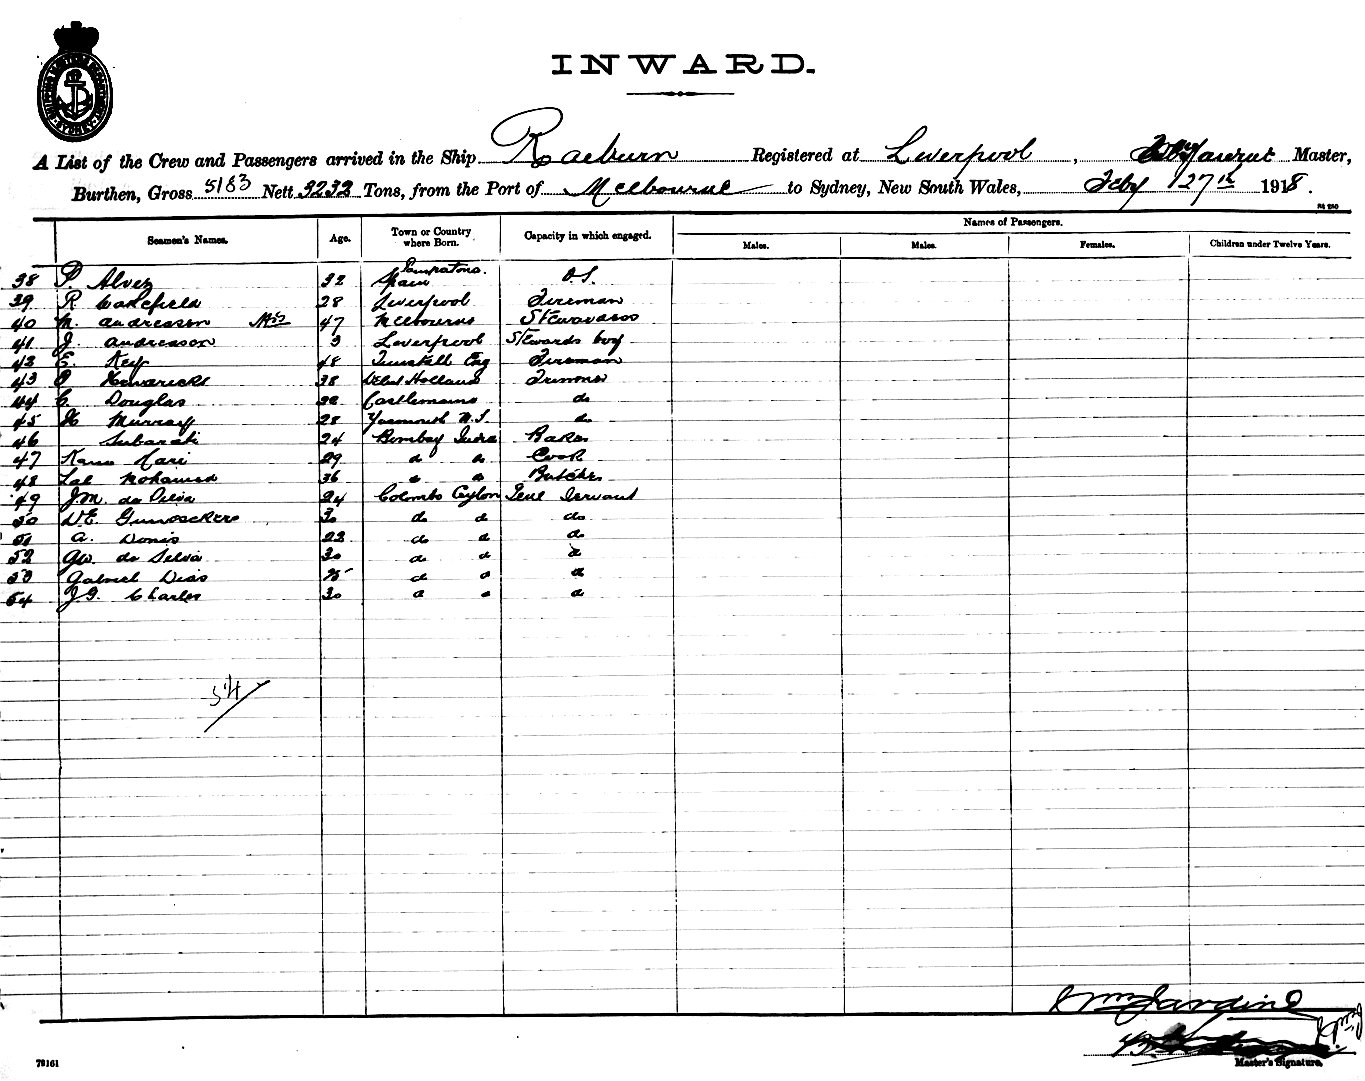 INWARD.
A List of the Crew and Passengers arrived in the Ship Raeburn Registered at Liverpool, Master,
Burthen, Gross 5183 Nett 3232 Tons, from the Port of Melbourne to Sydney, New South Wales, Feby 27th 1918.
Seamen's Names. Age. Town or Country where Born. Capacity in which engaged. Names of Passengers.
Males. Males. Females. Children under Twelve Years.
38 P. Alvez 32 Spain O.S.
39 R Wakefield 28 Liverpool Fireman
40 M. Andreason Mrs 47 Melbourne Stewardess
41 J. Andreason 9 Liverpool Stewards boy
42 E. Key 48 Tunstall Eng Fireman
43 38 Holland Trimmer
44 C. Douglas Castlemaine do
45 H Murray 28 Yarmouth N.S. do
46 Subarati 24 Bombay India Baker
47 29 d d Cook
48 Lal Mohamed 36 d d Butcher
49 J.M. da Silva 24 Colombo Ceylon Genl Servant
50 D.E. 30 do d do
51 A. Donis 22 do d do
52 da Selva 30 do d d
53 Gabriel Dias d d d
54 J.G. Charles 30 d d d
54
Wm Jardine
Master's Signature.
79161